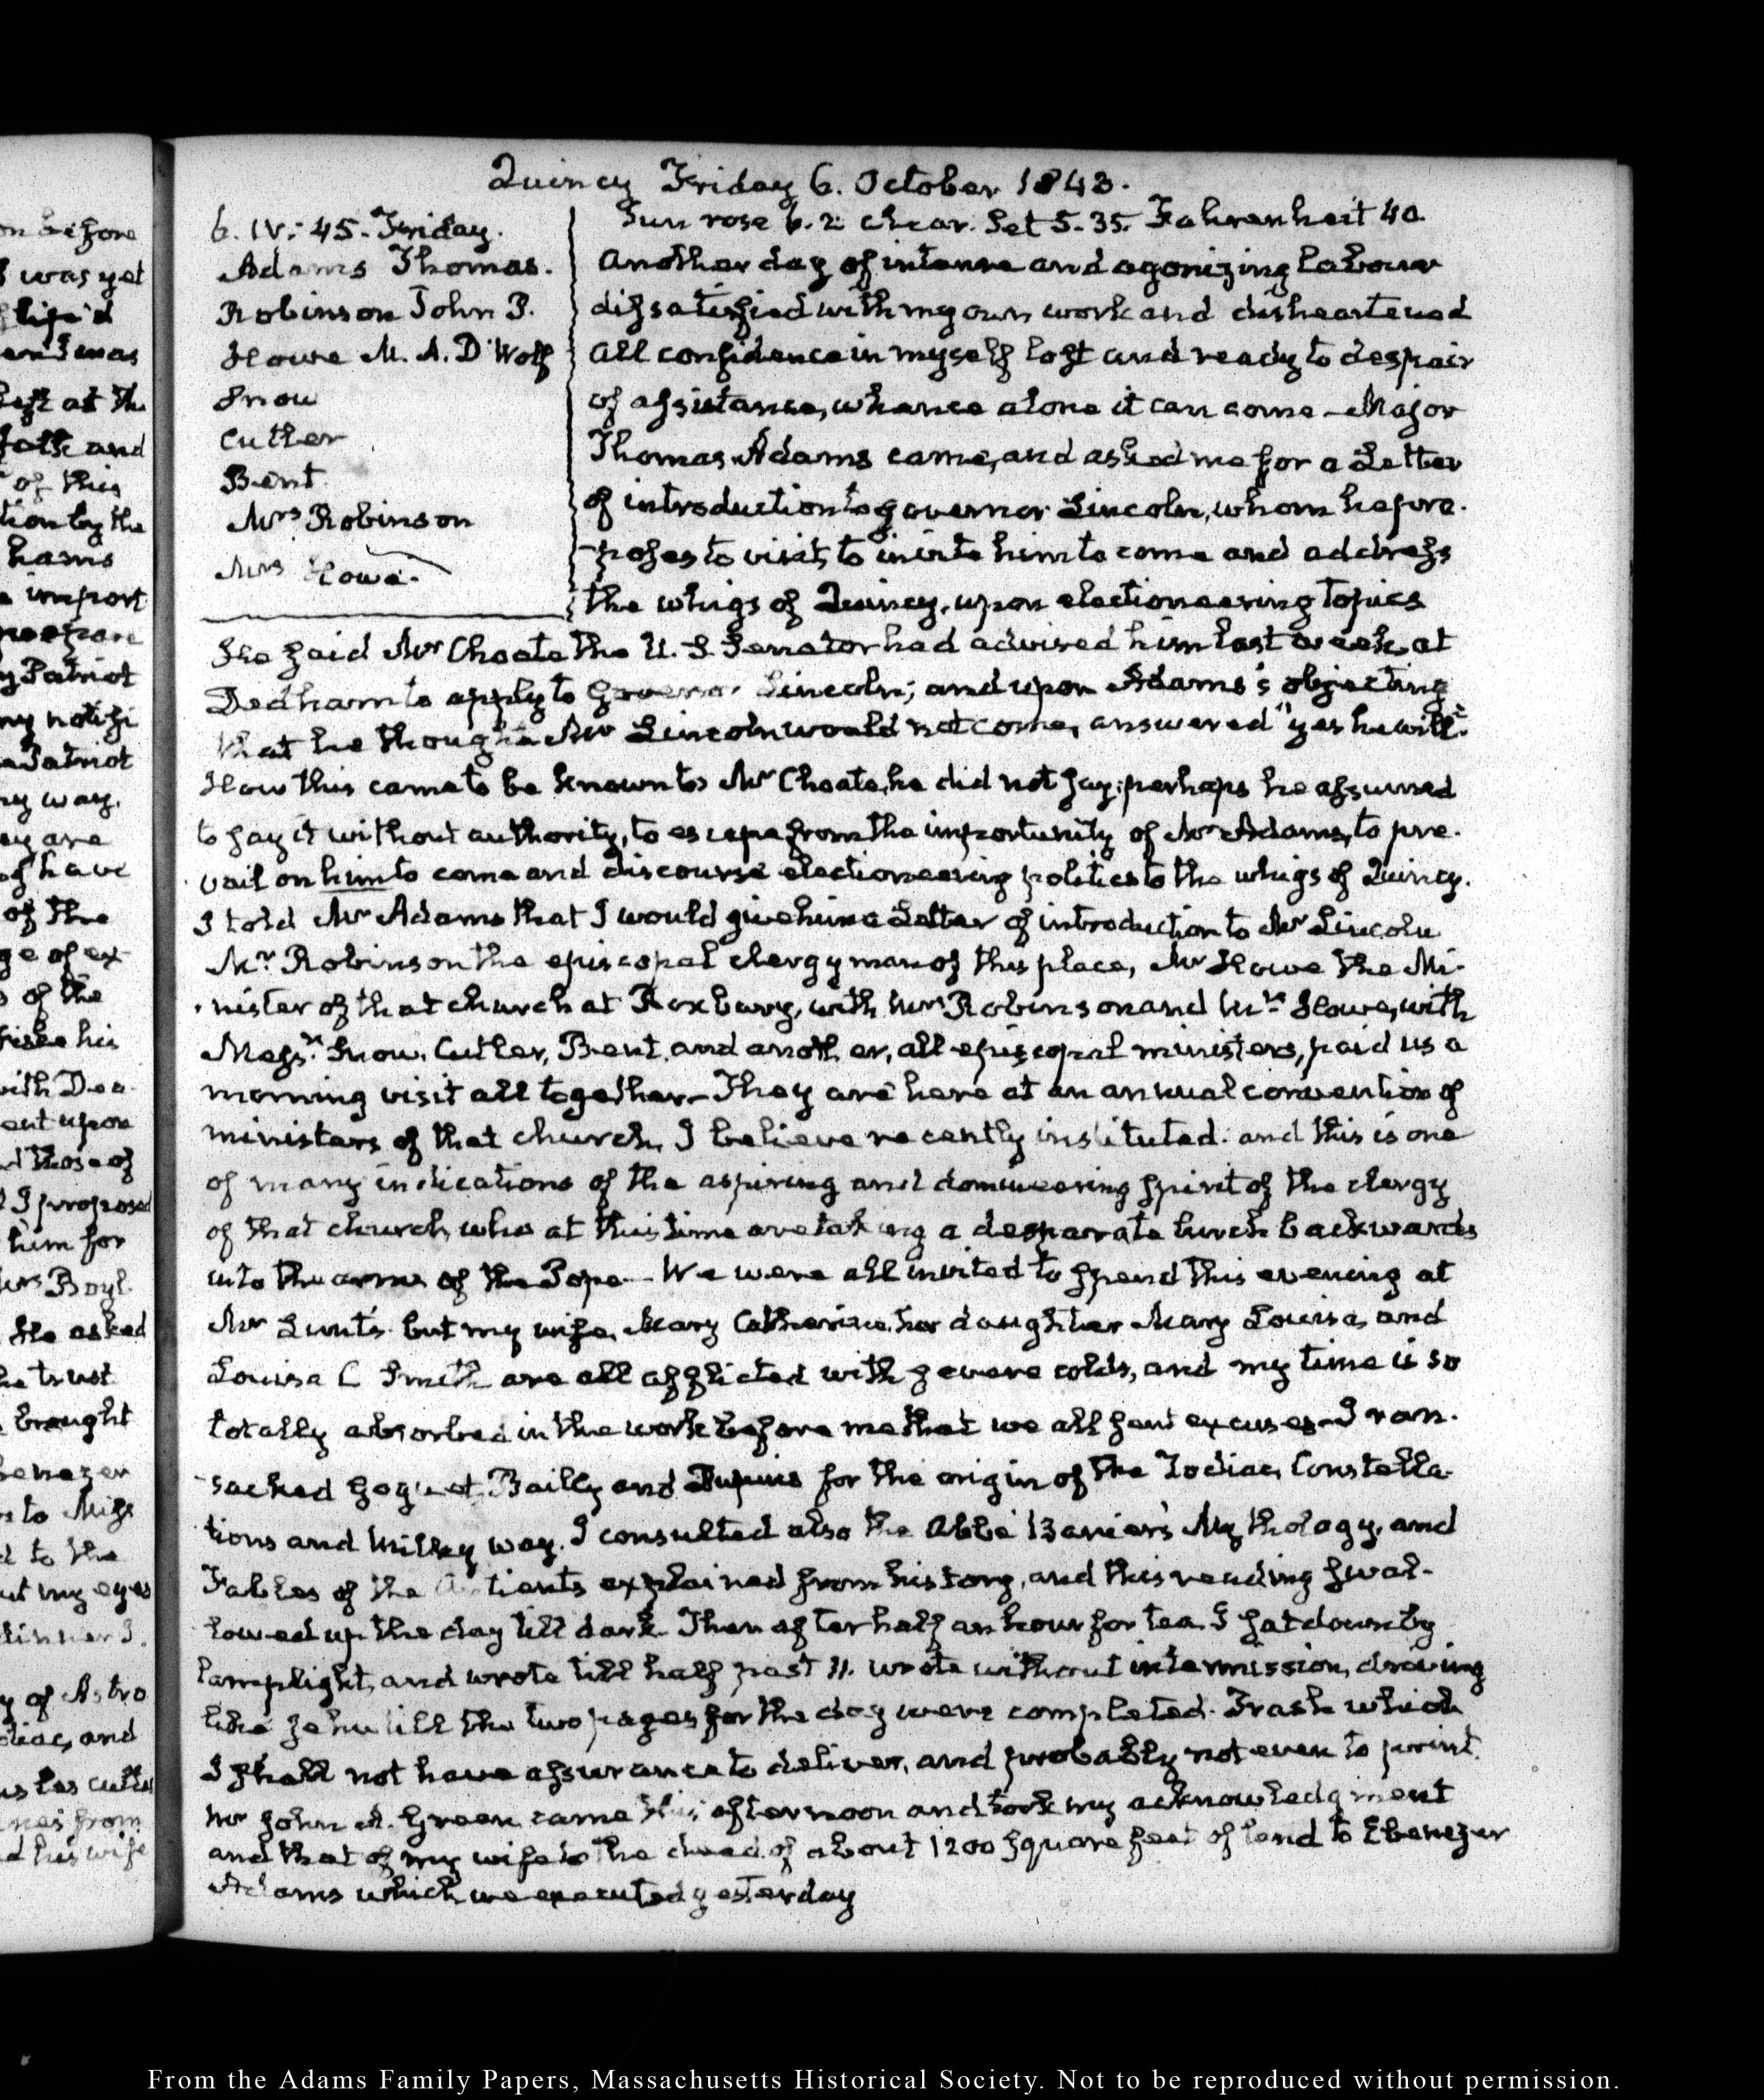 Quincy Friday 6. October 1843.
6. IV: 45. Friday.
Adams Thomas.
Robinson John P.
Howe M. A. D'Wolf
Snow
Cutler
Bent
Mrs Robinson
Mrs Howe.
Sun rose 6. 2 clear. Set 5. 35. Fahrenheit 40
Another day of intense and agonizing labour
dissatisfied with my own work and disheartened
All confidence in myself lost and ready to despair
of assistance, whence alone it can come — Major
Thomas Adams came, and asked me for a Letter
of introduction to governor Lincoln, whom he pro-
-poses to visit, to invite him to come and address
the whigs of Quincy, upon electioneering topics
He said Mr Choate the U. S. Senator had advised him last week, at
Dedham to apply to Governor Lincoln; and upon Adams's objecting
that he thought Mr Lincoln would not come, answered "yes he will"
How this came to be known to Mr Choate, he did not say; perhaps he assumed
to say it without authority, to escape from the importunity of Mr Adams, to pre-
vail on him to come and discourse electioneering politics to the whigs of Quincy.
I told Mr Adams that I would give him a Letter of introduction to Mr Lincoln
Mr Robinson the episcopal clergyman of this place, Mr Howe the Mi-
-nister of that church at Roxbury, with Mrs Robinson and Mrs Howe, with
Messrs Snow, Cutler, Bent, and another, all episcopal ministers, paid us a
morning visit all together — They are here at an annual convention of
ministers of that church, I believe recently instituted. and this is one
of many indications of the aspiring and domineering spirit of the clergy
of that church, who at this time are taking a desperate lurch backwards
into the arms of the Pope — We were all invited to spend this evening at
Mr Lunt's. but my wife, Mary Catherine, her daughter Mary Louisa, and
Louisa C Smith are all afflicted with severe colds, and my time is so
totally absorbed in the work before me that we all sent excuses — I ran-
-sacked Goguet, Bailly and Dupuis for the origin of the Zodiac, Constella-
tions and Milky way. I consulted also the Abbé Banier's Mythology, and
Fables of the Antients explained from history, and this reading swal-
lowed up the day till dark. Then after half an hour for tea I sat down by
lamplight, and wrote till half past 11. wrote without intermission, driving
like Jehu till the two pages for the day were completed. Trash which
I shall not have assurance to deliver, and probably not even to print.
Mr John A. Green came this afternoon and took my acknowledgment
and that of my wife to the deed of about 1200 square feet of land to Ebenezer
Adams which we executed yesterday
From the Adams Family Papers, Massachusetts Historical Society. Not to be reproduced without permission.